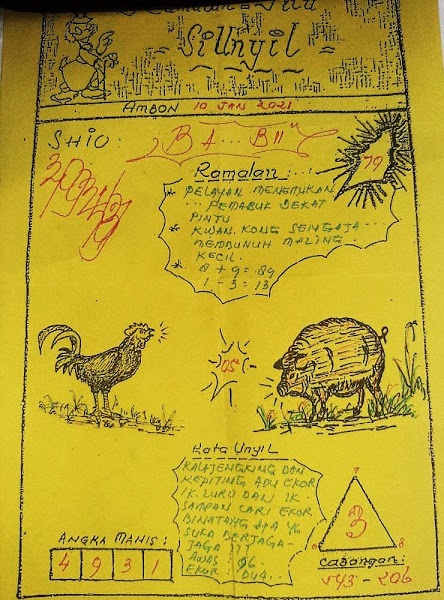 SiUnyil
AMBON 10 JAN 2021
SHIO: BA... BII
79
Ramalan:
* PELAYAN MENEMUKAN
PEMABUK DEKAT
PINTU
* KWAN KONG SENGAJA
MEMBUNUH MALING
KECIL.
* 8 + 9 = 89
1 - 3 = 13
05
Kata Unyil
KALAJENGKING DAN
KEPITING ADU EKOR
IK. LURU DAN IK.
SAMPAN CARI EKOR
BINATANG APA YG
SUKA BERTAGA-
JAGA !!!
AWAS 96
EKOR DUA..
ANGKA MANIS:
4 9 3 1
8
Cadangan:
543 - 206